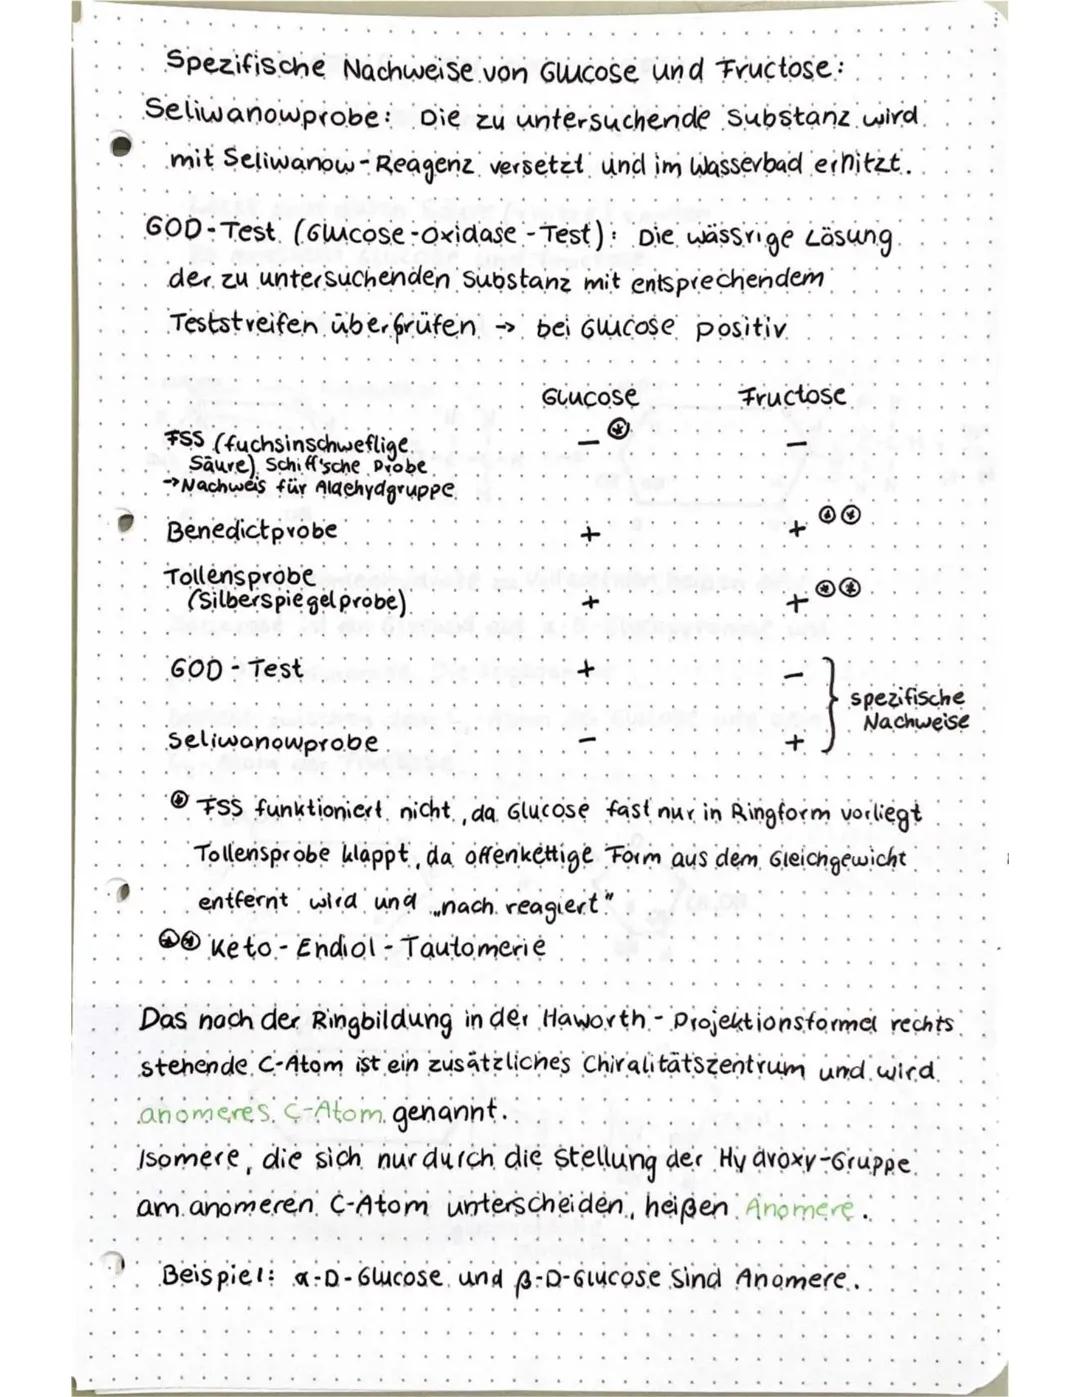 Spezifische Nachweise von Glucose und Fructose:
Seliwanowprobe: Die zu untersuchende Substanz wird
mit Seliwanow-Reagenz versetzt und im Wasserbad erhitzt.
GOD-Test (Glucose-Oxidase-Test): Die wässrige Lösung
der zu untersuchenden Substanz mit entsprechendem
Teststreifen überprüfen → bei Glucose positiv
Glucose Fructose
FSS (fuchsinschweflige – ⊛ –
Säure) Schiff'sche Probe
→ Nachweis für Aldehydgruppe
Benedictprobe + + ⊛⊛
Tollensprobe
(Silberspiegelprobe) + + ⊛⊛
GOD-Test + –
spezifische
Nachweise
Seliwanowprobe – +
⊛ FSS funktioniert nicht, da Glucose fast nur in Ringform vorliegt
Tollensprobe klappt, da offenkettige Form aus dem Gleichgewicht
entfernt wird und „nach reagiert"
⊛⊛ Keto-Endiol-Tautomerie
Das nach der Ringbildung in der Haworth-Projektionsformel rechts
stehende C-Atom ist ein zusätzliches Chiralitätszentrum und wird
anomeres C-Atom genannt.
Isomere, die sich nur durch die Stellung der Hydroxy-Gruppe
am anomeren C-Atom unterscheiden, heißen Anomere.
Beispiel: α-D-Glucose und β-D-Glucose sind Anomere.